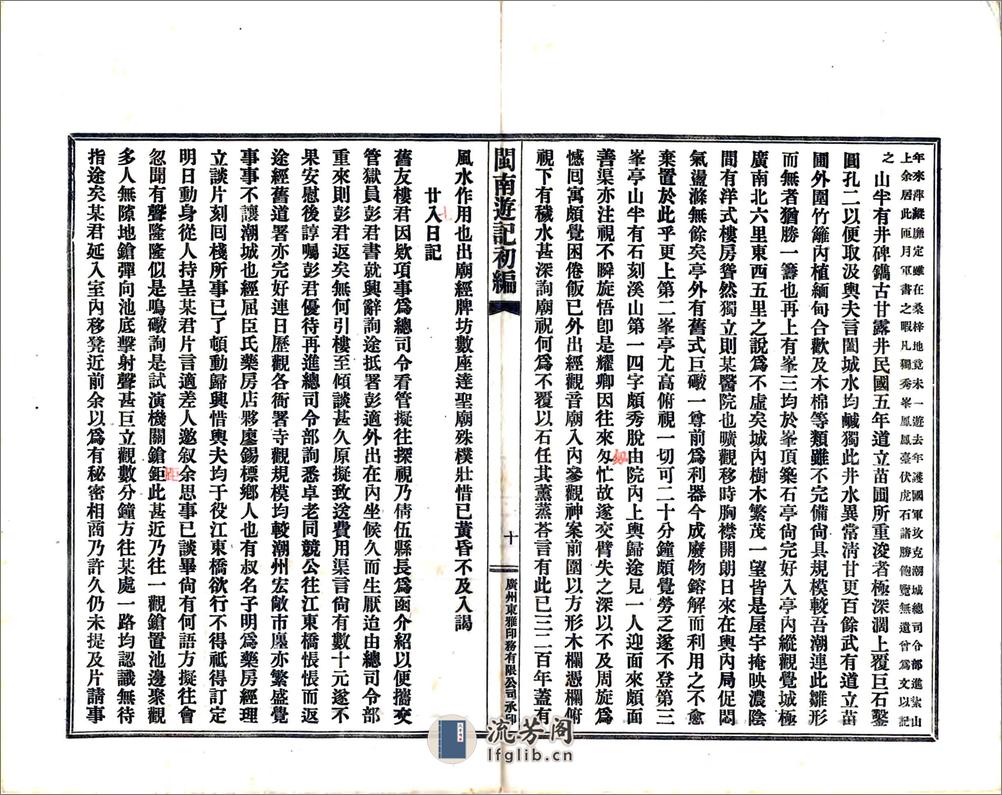 年來萍蹤靡定雖在桑梓地竟未一遊去年護國軍攻克潮城總司令部進紮山
上余居此匝月軍書之暇凡獨秀峯鳳凰臺伏虎石諸勝飽覽無遺曾爲文以記
之
山半有井碑鐫古甘露井民國五年道立苗圃所重浚者極深濶上覆巨石鑿
圓孔二以便取汲輿夫言闔城水均鹹獨此井水異常清甘更百餘武有道立苗
圃圃外圍竹籬內植緬甸合歡及木棉等類雖不完備尙具規模較吾潮連此雛形
而無者猶勝一籌也再上有峯三均於峯頂築石亭尙完好入亭內縱觀覺城極
廣南北六里東西五里之說爲不虛矣城內樹木繁茂一望皆是屋宇掩映濃陰
間有洋式樓房聳然獨立則某醫院也曠觀移時胸襟開朗日來在輿內局促悶
氣盪滌無餘矣亭外有舊式巨礮一尊前爲利器今成廢物鎔解而利用之不愈
棄置於此乎更上第二峯亭尤高俯視一切可二十分鐘頗覺勞乏遂不登第三
峯亭山半有石刻溪山第一四字頗秀脫由院內上輿歸途見一人迎面來頗面
善渠亦注視不瞬旋悟卽是耀卿因往來匆忙故遂交臂失之深以不及周旋爲
憾回寓頗覺困倦飯已外出經觀音廟入內參觀神案前圍以方形木欄憑欄俯
視下有穢水甚深詢廟祝何爲不覆以石任其薰蒸荅言有此已三二百年蓋有
閩南遊記初編
十
廣州東雅印務有限公司承印
風水作用也出廟經牌坊數座達聖廟殊樸壯惜已黃昏不及入謁
廿入日記
八
舊友樓君因欵項事爲總司令看管擬往探視乃倩伍縣長爲函介紹以便攜交
管獄員彭君書就興辭詢途抵署彭適外出在內坐候久而生厭迨由總司令部
重來則彭君返矣無何引樓至傾談甚久原擬致送費用渠言尙有數十元遂不
果安慰後諄囑彭君優待再進總司令部詢悉卓老同競公往江東橋悵悵而返
途經舊道署亦完好連日歷觀各衙署寺觀規模均較潮州宏敞市廛亦繁盛覺
事事不讓潮城也經屈臣氏藥房店夥廖錫標鄉人也有叔名子明爲藥房經理
立談片刻囘棧所事已了頓動歸興惜輿夫均于役江東橋欲行不得祗得訂定
明日動身從人持呈某君片言適差人邀叙余思事已談畢尙有何語方擬往會
忽聞有聲隆隆似是鳴礮詢是試演機關鎗鉅此甚近乃往一觀鎗置池邊聚觀
距
多人無隙地鎗彈向池底擊射聲甚巨立觀數分鐘方往某處一路均認識無待
指途矣某君延入室內移凳近前余以爲有秘密相商乃許久仍未提及片請事
流芳阁
lfglib.cn